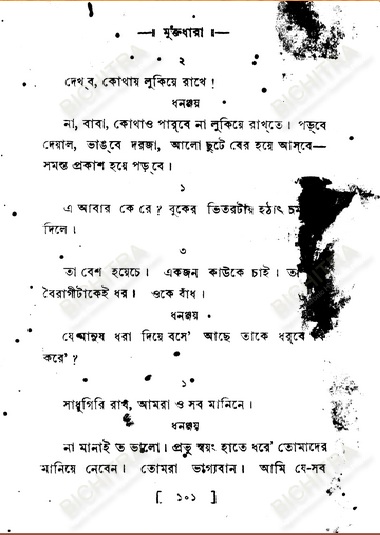 —॥ মুক্তধারা ॥—
২
দেখ্‌ব, কোথায় লুকিয়ে রাখে!
ধনঞ্জয়
না, বাবা, কোথাও পার্‌বে না লুকিয়ে রাখ্‌তে। পড়্‌বে
দেয়াল, ভাঙ্‌বে দরজা, আলো ছুটে বের হয়ে আস্‌বে—
সমস্ত প্রকাশ হয়ে পড়্‌বে।
১
এ আবার কে রে? বুকের ভিতরটায় হঠাৎ
দিলে।
৩
তা বেশ হয়েচে। একজন কাউকে চাই। তা
বৈরাগীটাকেই ধর। ওকে বাঁধ।
ধনঞ্জয়
যে মানুষ ধরা দিয়ে বসে' আছে তাকে ধর্‌বে
করে'?
১
সাধুগিরি রাখ, আমরা ও সব মানিনে।
ধনঞ্জয়
না মানাই ত ভালো। প্রভু স্বয়ং হাতে ধরে' তোমাদের
মানিয়ে নেবেন। তোমরা ভাগ্যবান। আমি যে-সব
[ ১০১ ]
BICHITRA
BICHITRA
BICHITRA
BICHITRA
BICHITRA
BICHITRA